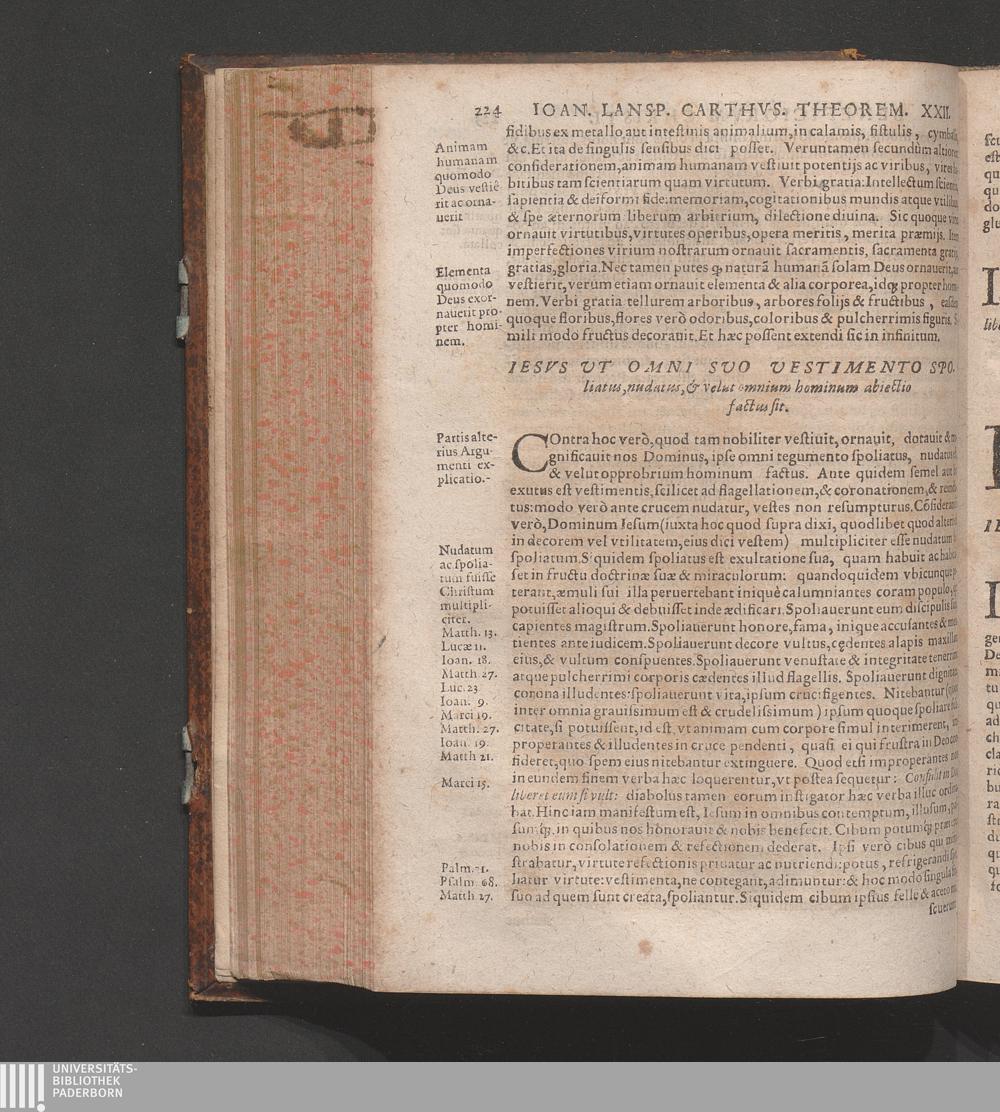 224 IOAN. LANSP. CARTHVS. THEOREM. XXII.
fidibus ex metallo aut intestinis animalium, in calamis, fistulis, cymbalis
&c. Et ita de singulis sensibus dici posset. Veruntamen secundùm altiorem
considerationem, animam humanam vestiuit potentijs ac viribus, vires
bitibus tam scientiarum quam virtutum. Verbi gratia: Intellectum scientia,
sapientia & deiformi fide: memoriam, cogitationibus mundis atque vtilibus
& spe æternorum liberum arbitrium, dilectione diuina. Sic quoque vires
ornauit virtutibus, virtutes operibus, opera meritis, merita præmijs. Item
imperfectiones virium nostrarum ornauit sacramentis, sacramenta gratijs,
gratias, gloria. Nec tamen putes ꝙ naturã humanã solam Deus ornauerit,
vestierit, verùm etiam ornauit elementa & alia corporea, idq; propter homi
nem. Verbi gratia tellurem arboribus, arbores folijs & fructibus, easdem
quoque floribus, flores verò odoribus, coloribus & pulcherrimis figuris. Si
mili modo fructus decorauit. Et hæc possent extendi sic in infinitum.
Animam
humanam
quomodo
Deus vestiê
rit ac orna-
uerit
Elementa
quomodo
Deus exor-
nauerit pro-
pter homi-
nem.
IESVS VT OMNI SVO VESTIMENTO SPO.
liatus, nudatus, & velut omnium hominum abiectio
factus sit.
Partis alte-
rius Argu-
menti ex-
plicatio.-
COntra hoc verò, quod tam nobiliter vestiuit, ornauit, dotauit &
gnificauit nos Dominus, ipse omni tegumento spoliatus, nudatus
& velut opprobrium hominum factus. Ante quidem semel aut
exutus est vestimentis, scilicet ad flagellationem, & coronationem, &
tus: modo verò ante crucem nudatur, vestes non resumpturus. Cõsiderandum
verò, Dominum Iesum (iuxta hoc quod supra dixi, quodlibet quod alteri
in decorem vel vtilitatem, eius dici vestem) multipliciter esse nudatum
spoliatum. Siquidem spoliatus est exultatione sua, quam habuit ac
set in fructu doctrinæ suæ & miraculorum: quandoquidem vbicunque
terant, æmuli sui illa peruertebant iniquè calumniantes coram populo,
potuisset alioqui & debuisset inde ædificari. Spoliauerunt eum discipulis
capientes magistrum. Spoliauerunt honore, fama, inique accusantes &
tientes ante iudicem. Spoliauerunt decore vultus, cędentes alapis maxillas
eius, & vultum conspuentes. Spoliauerunt venustate & integritate tenerrimi
atque pulcherrimi corporis cædentes illud flagellis. Spoliauerunt dignitate
corona illudentes: spoliauerunt vita, ipsum crucifigentes. Nitebantur
inter omnia grauissimum est & crudelissimum) ipsum quoque spoliare
citate, si potuissent, id est, vt animam cum corpore simul interimerent,
properantes & illudentes in cruce pendenti, quasi ei qui frustra in Deo
fideret, quo spem eius nitebantur extinguere. Quod etsi improperantes
in eundem finem verba hæc loquerentur, vt postea sequetur: Confidit in
liberet eum si vult: diabolus tamen eorum instigator hæc verba illuc
bat. Hinc iam manifestum est, Iesum in omnibus contemptum, illusum,
sumq;, in quibus nos honorauit & nobis benefecit. Cibum potumq;
nobis in consolationem & refectionem dederat. Ipsi verò cibus qui
strabatur, virtute refectionis priuatur ac nutriendi: potus, refrigerandi
liatur virtute: vestimenta, ne contegant, adimuntur: & hoc modo singula
suo ad quem sunt creata, spoliantur. Siquidem cibum ipsius felle & aceto
scuerunt
Nudatum
ac spolia-
tum fuisse
Christum
multipli-
citer.
Matth. 13.
Lucæ 11.
Ioan. 18.
Matth. 27.
Luc. 23
Ioan. 9.
Marci 19.
Matth. 27.
Ioan. 19.
Matth 21.
Marci 15.
Psalm. 21.
Psalm. 68.
Matth 27.
UNIVERSITÄTS-
BIBLIOTHEK
PADERBORN